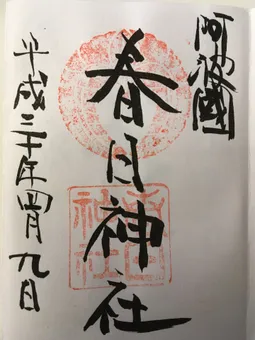 阿波國
春日神社
平成三十年四月九日
春日神社